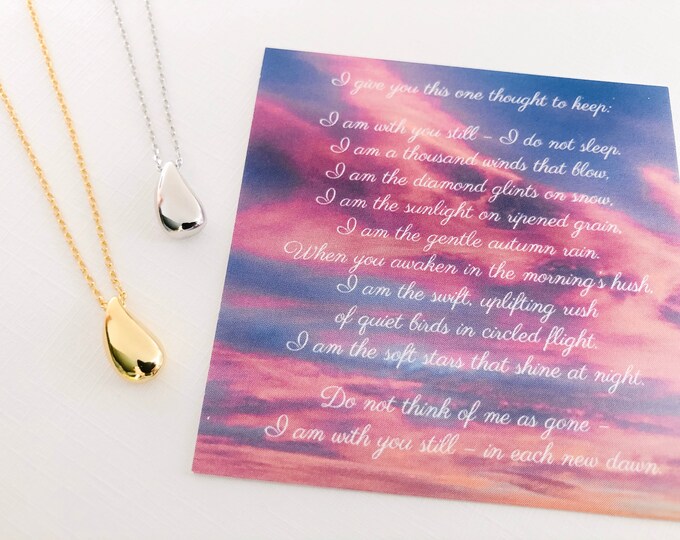 I give you this one thought to keep:
I am with you still – I do not sleep.
I am a thousand winds that blow,
I am the diamond glints on snow,
I am the sunlight on ripened grain,
I am the gentle autumn rain.
When you awaken in the morning's hush,
I am the swift, uplifting rush
of quiet birds in circled flight.
I am the soft stars that shine at night.
Do not think of me as gone –
I am with you still – in each new dawn.